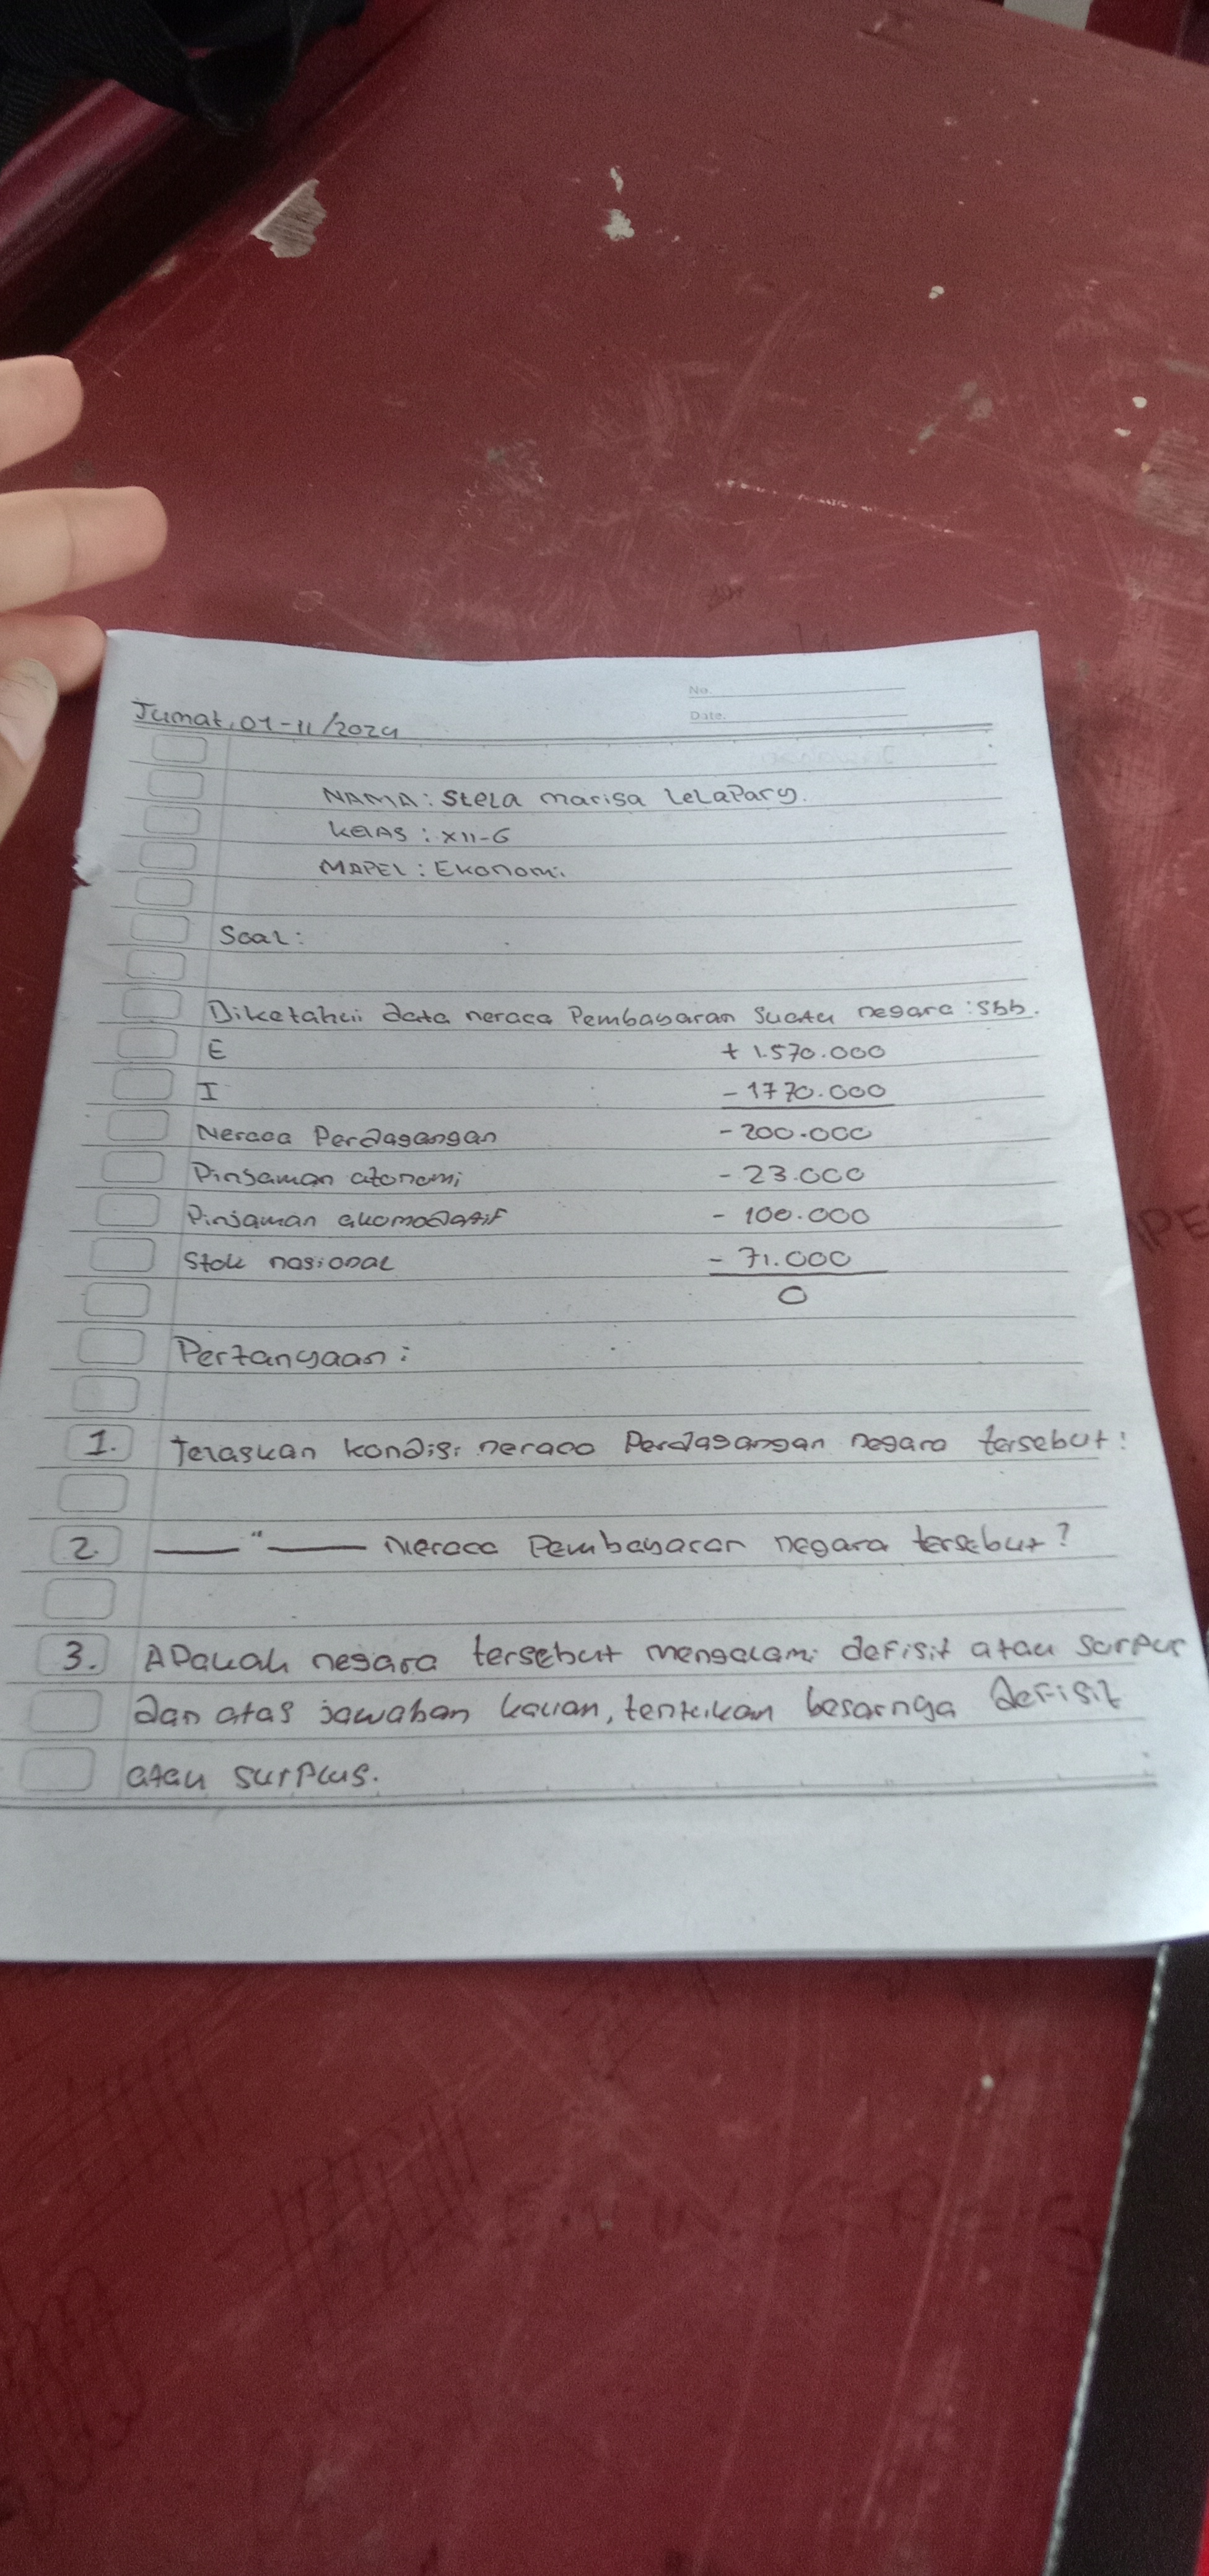 No.
Date.
Jumat, 01-11/2024
NAMA: Stela marisa LeLaPary.
KelAS: XII-6
MAPEL: Ekonomi.
Soal:
Diketahui data neraca Pembayaran Suatu negara: sbb.
E + 1.570.000
I - 1770.000
Neraca Perdagangan - 200.000
Pinjaman otonomi - 23.000
Pinjaman akomodatif - 100.000
Stok nasional - 71.000
0
Pertanyaan:
1. Jelaskan kondisi neraca Perdagangan negara tersebut!
2. ——"—— Neraca Pembayaran negara tersebut?
3. APakah negara tersebut mengalami defisit atau SurPur
dan atas jawaban kalian, tentukan besarnya deFisit
atau surPlus.